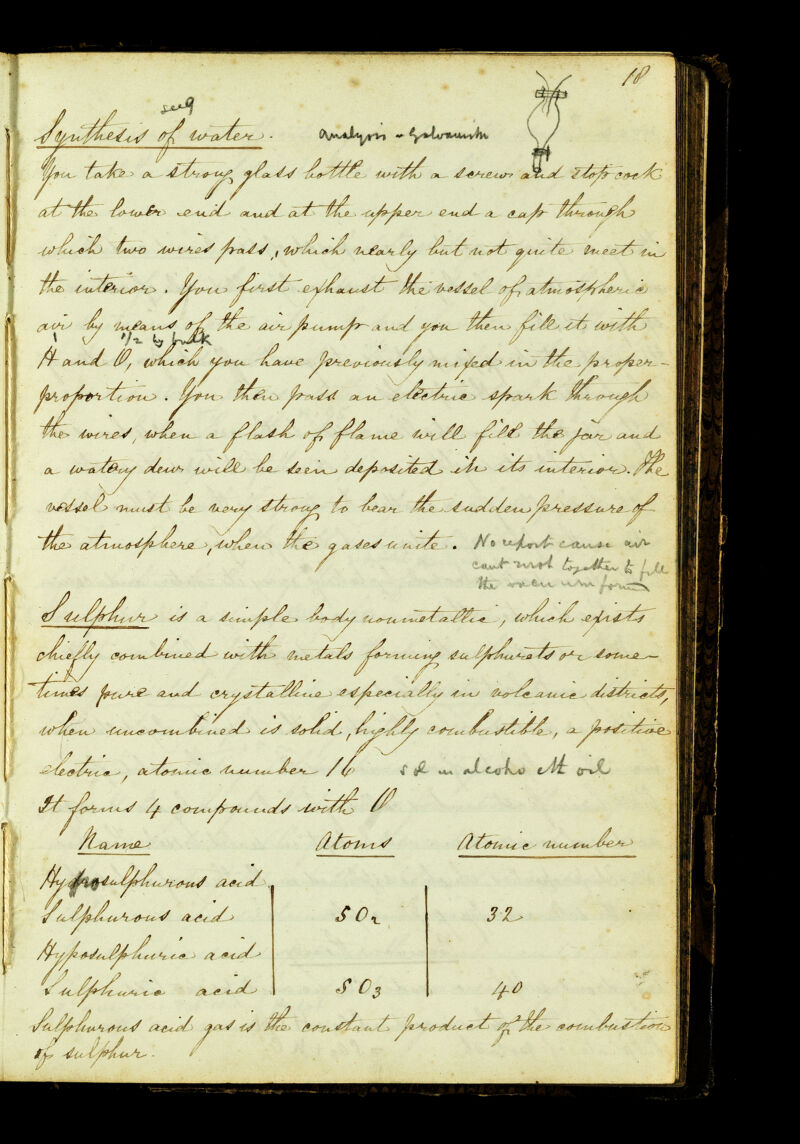 18
Synthesis of water.
analysis - Galvanism
You take a strong glass bottle with a screw and stop cock
at the lower end and at the upper end a cap through
which two wires pass, which nearly but not quite meet in
the interior. You first exhaust the vessel of atmospheric
air by means of the air pump and you then fill it with
1 1/2 by bulk
H and O, which you have previously mixed in the proper-
proportion. You then pass an electric spark through
the wires, when a flash of flame will fill the jar and
a watery dew will be seen deposited in its interior. The
vessel must be very strong to bear the sudden pressure of
the atmosphere, when the gases unite.
No report cause air
cant rush together to fill
the vacuum form
Sulphur is a simple body nonmetallic, which exists
chiefly combined with metals forming sulphurets or some-
times pure and crystalline especially in volcanic districts,
when uncombined is solid, highly combustible, a positive
electric, atomic number 16
in alcoho oil
It forms 4 compounds with O
Name Atoms Atomic number
Hyposulphurous acid
Sulphurous acid SO2 32
Hyposulphuric acid
Sulphuric acid SO3 40
Sulphurous acid gas is the constant product of the combustion
of sulphur.